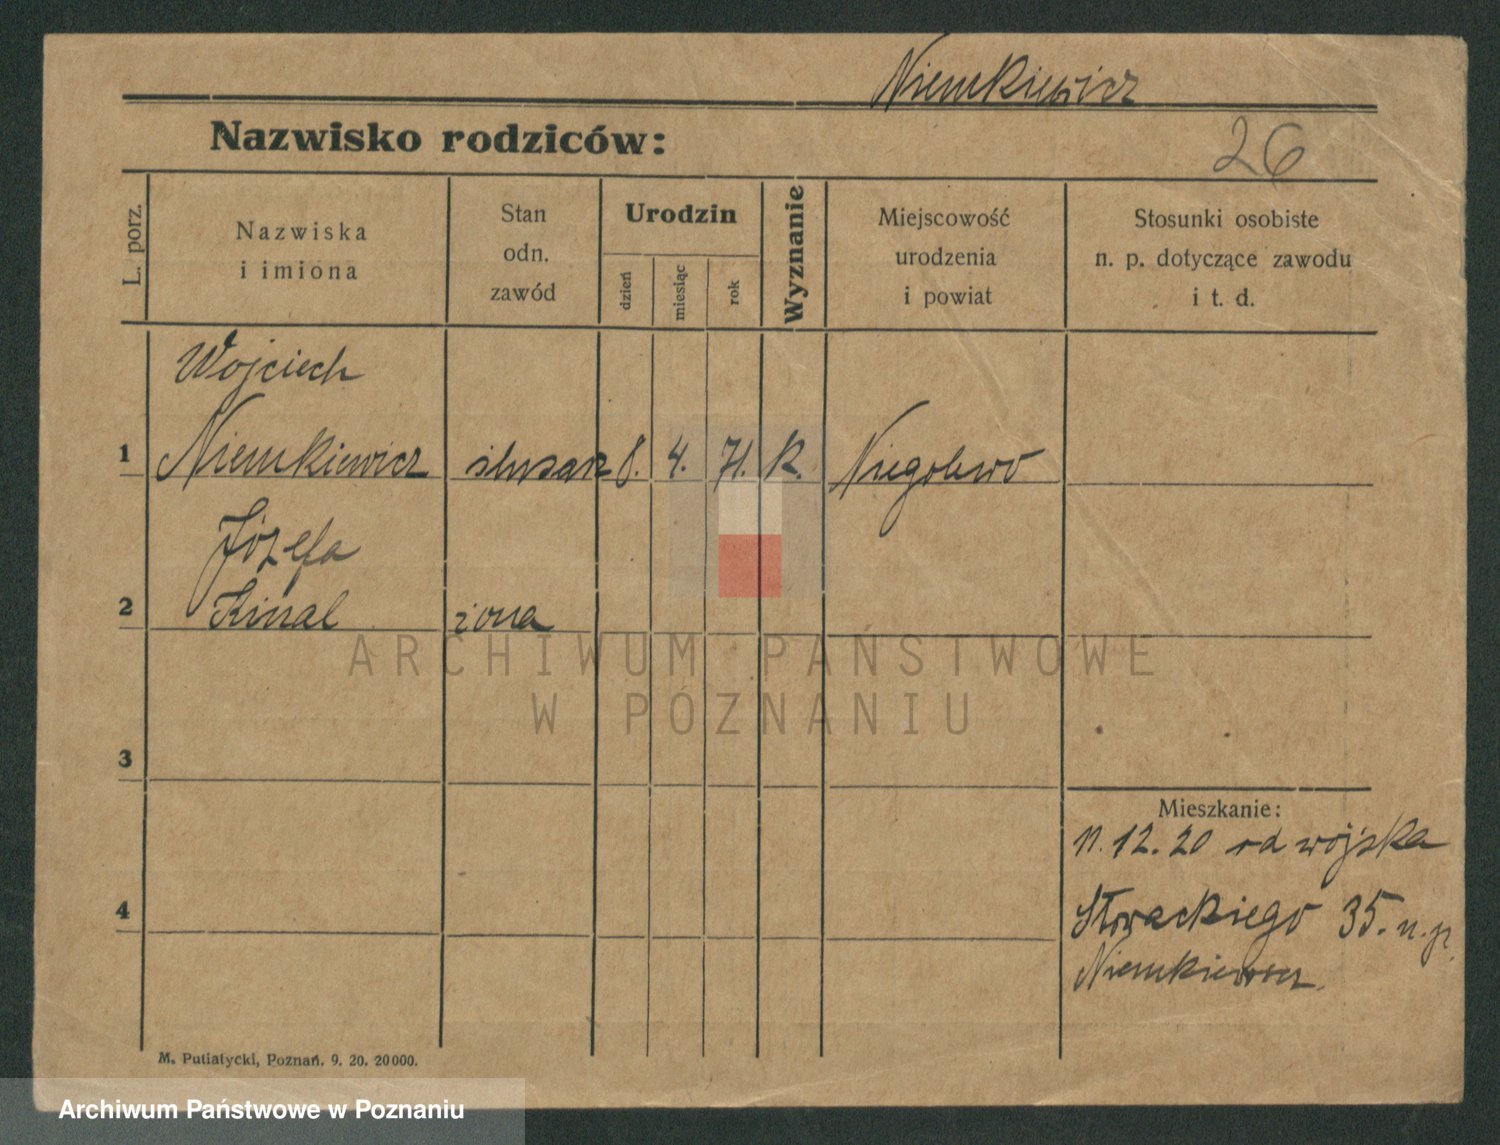 Niemkiewicz
Nazwisko rodziców:
26
L. porz.
Nazwiska
i imiona
Stan
odn.
zawód
Urodzin
dzień
miesiąc
rok
Wyznanie
Miejscowość
urodzenia
i powiat
Stosunki osobiste
n. p. dotyczące zawodu
i t. d.
Wojciech
1 Niemkiewicz ślusarz 8. 4. 71. K. Niegolewo
Józefa
2 żona
ARCHIWUM PAŃSTWOWE
W POZNANIU
3
Mieszkanie:
11.12.20 od wojska
4
Słowackiego 35.
Niemkiewicz
M. Putiatycki, Poznań. 9. 20. 20000.
Archiwum Państwowe w Poznaniu